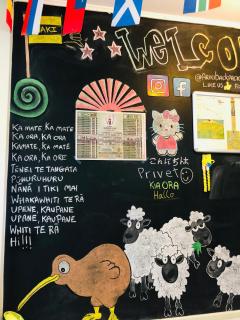 AKI
WELCO
LIKE US
KA MATE, KA MATE
KA ORA, KA ORA
KAMATE, KA MATE
KA ORA, KA ORE
TĒNEI TE TANGATA
PŪHURUHURU
NĀNĀ I TIKI MAI
WHAKAWHITI TE RĀ
UPENE, KAUPANE
UPANE, KAUPANE
WHITI TE RĀ
HI!!!
こんにちは
Privet
KA ORA
Hallo